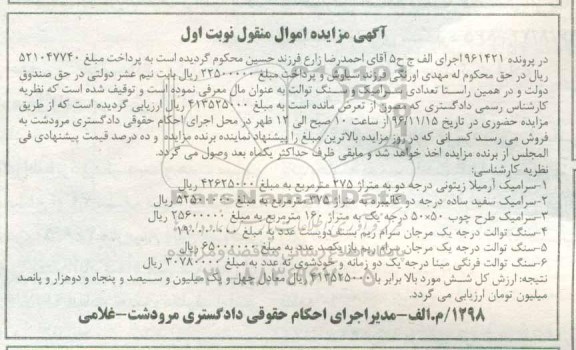 آگهی مزایده اموال منقول نوبت اول
در پرونده ۹۶۱۴۲۱ اجرای الف ج ح۵ آقای احمدرضا زارع فرزند حسین محکوم گردیده است به پرداخت مبلغ ۵۲۱۰۴۷۷۴۰
ریال در حق محکوم له مهدی اورنگی فرزند سیاوش و پرداخت مبلغ ۲۲۵۰۰۰۰۰ ریال بابت نیم عشر دولتی در حق صندوق
دولت و در همین راستا تعدادی سرامیک و سنگ توالت به عنوان مال معرفی نموده است و توقیف شده است که نظریه
کارشناس رسمی دادگستری که مصون از تعرض مانده است به مبلغ ۴۱۳۵۲۵۰۰۰ ریال ارزیابی گردیده است که از طریق
مزایده حضوری در تاریخ ۹۶/۱۱/۱۵ از ساعت ۱۰ صبح الی ۱۲ ظهر در محل اجرای احکام حقوقی دادگستری مرودشت به
فروش می رسد کسانی که در روز مزایده بالاترین مبلغ را پیشنهاد نماینده برنده مزایده و ده درصد قیمت پیشنهادی فی
المجلس از برنده مزایده اخذ خواهد شد و مابقی ظرف حداکثر یکماه بعد وصول می گردد.
نظریه کارشناسی:
۱-سرامیک آرمیلا زیتونی درجه دو به متراژ ۲۷۵ مترمربع به مبلغ ۴۲۶۲۵۰۰۰ ریال
۲-سرامیک سفید ساده درجه دو به متراژ ۳۷۵ مترمربع به مبلغ ریال
۳-سرامیک طرح چوب ۵۰×۵۰ درجه یک به متراژ ۱۶۰ مترمربع به مبلغ ۲۵۶۰۰۰۰۰ ریال
۴-سنگ توالت درجه یک مرجان سرام ریم بسته دویست عدد به مبلغ ریال
۵-سنگ توالت درجه یک مرجان سرام ریم باز یکصد عدد به مبلغ ۶۵۰۰۰۰۰۰ ریال
۶-سنگ توالت فرنگی مینا درجه یک دو زمانه و خودشوی نه عدد به مبلغ ۳۰۷۸۰۰۰۰ ریال
نتیجه: ارزش کل شش مورد بالا برابر با ۴۱۳۵۲۵۰۰۰ ریال معادل چهل و یک میلیون و سیصد و پنجاه و دوهزار و پانصد
میلیون تومان ارزیابی می گردد.
۱۲۹۸/م.الف-مدیراجرای احکام حقوقی دادگستری مرودشت-غلامی